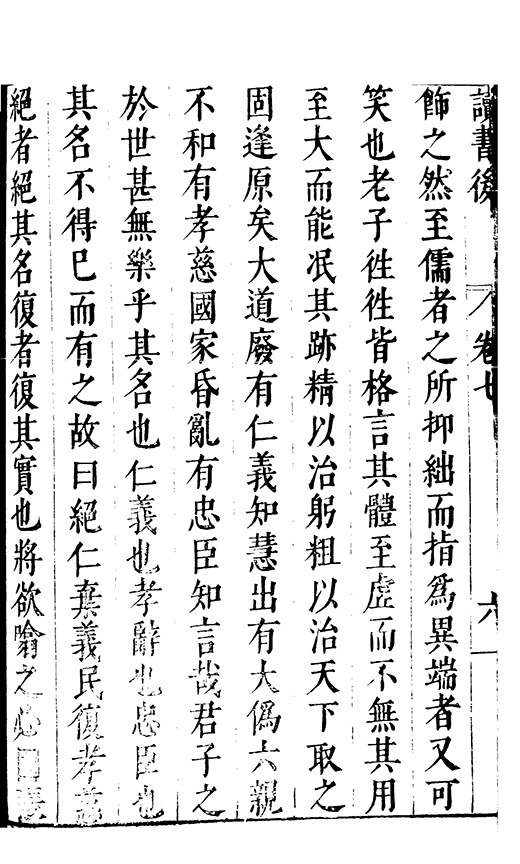 讀書後 卷七 六
飾之然至儒者之所抑絀而指為異端者又可
笑也老子徃徃皆格言其體至虛而不無其用
至大而能泯其跡精以治躬粗以治天下取之
固逢原矣大道廢有仁義知慧出有大偽六親
不和有孝慈國家昏亂有忠臣知言哉君子之
於世甚無樂乎其名也仁義也孝辭也忠臣也
其名不得已而有之故曰絕仁棄義民復孝慈
絕者絕其名復者復其實也將欲噏之必固張